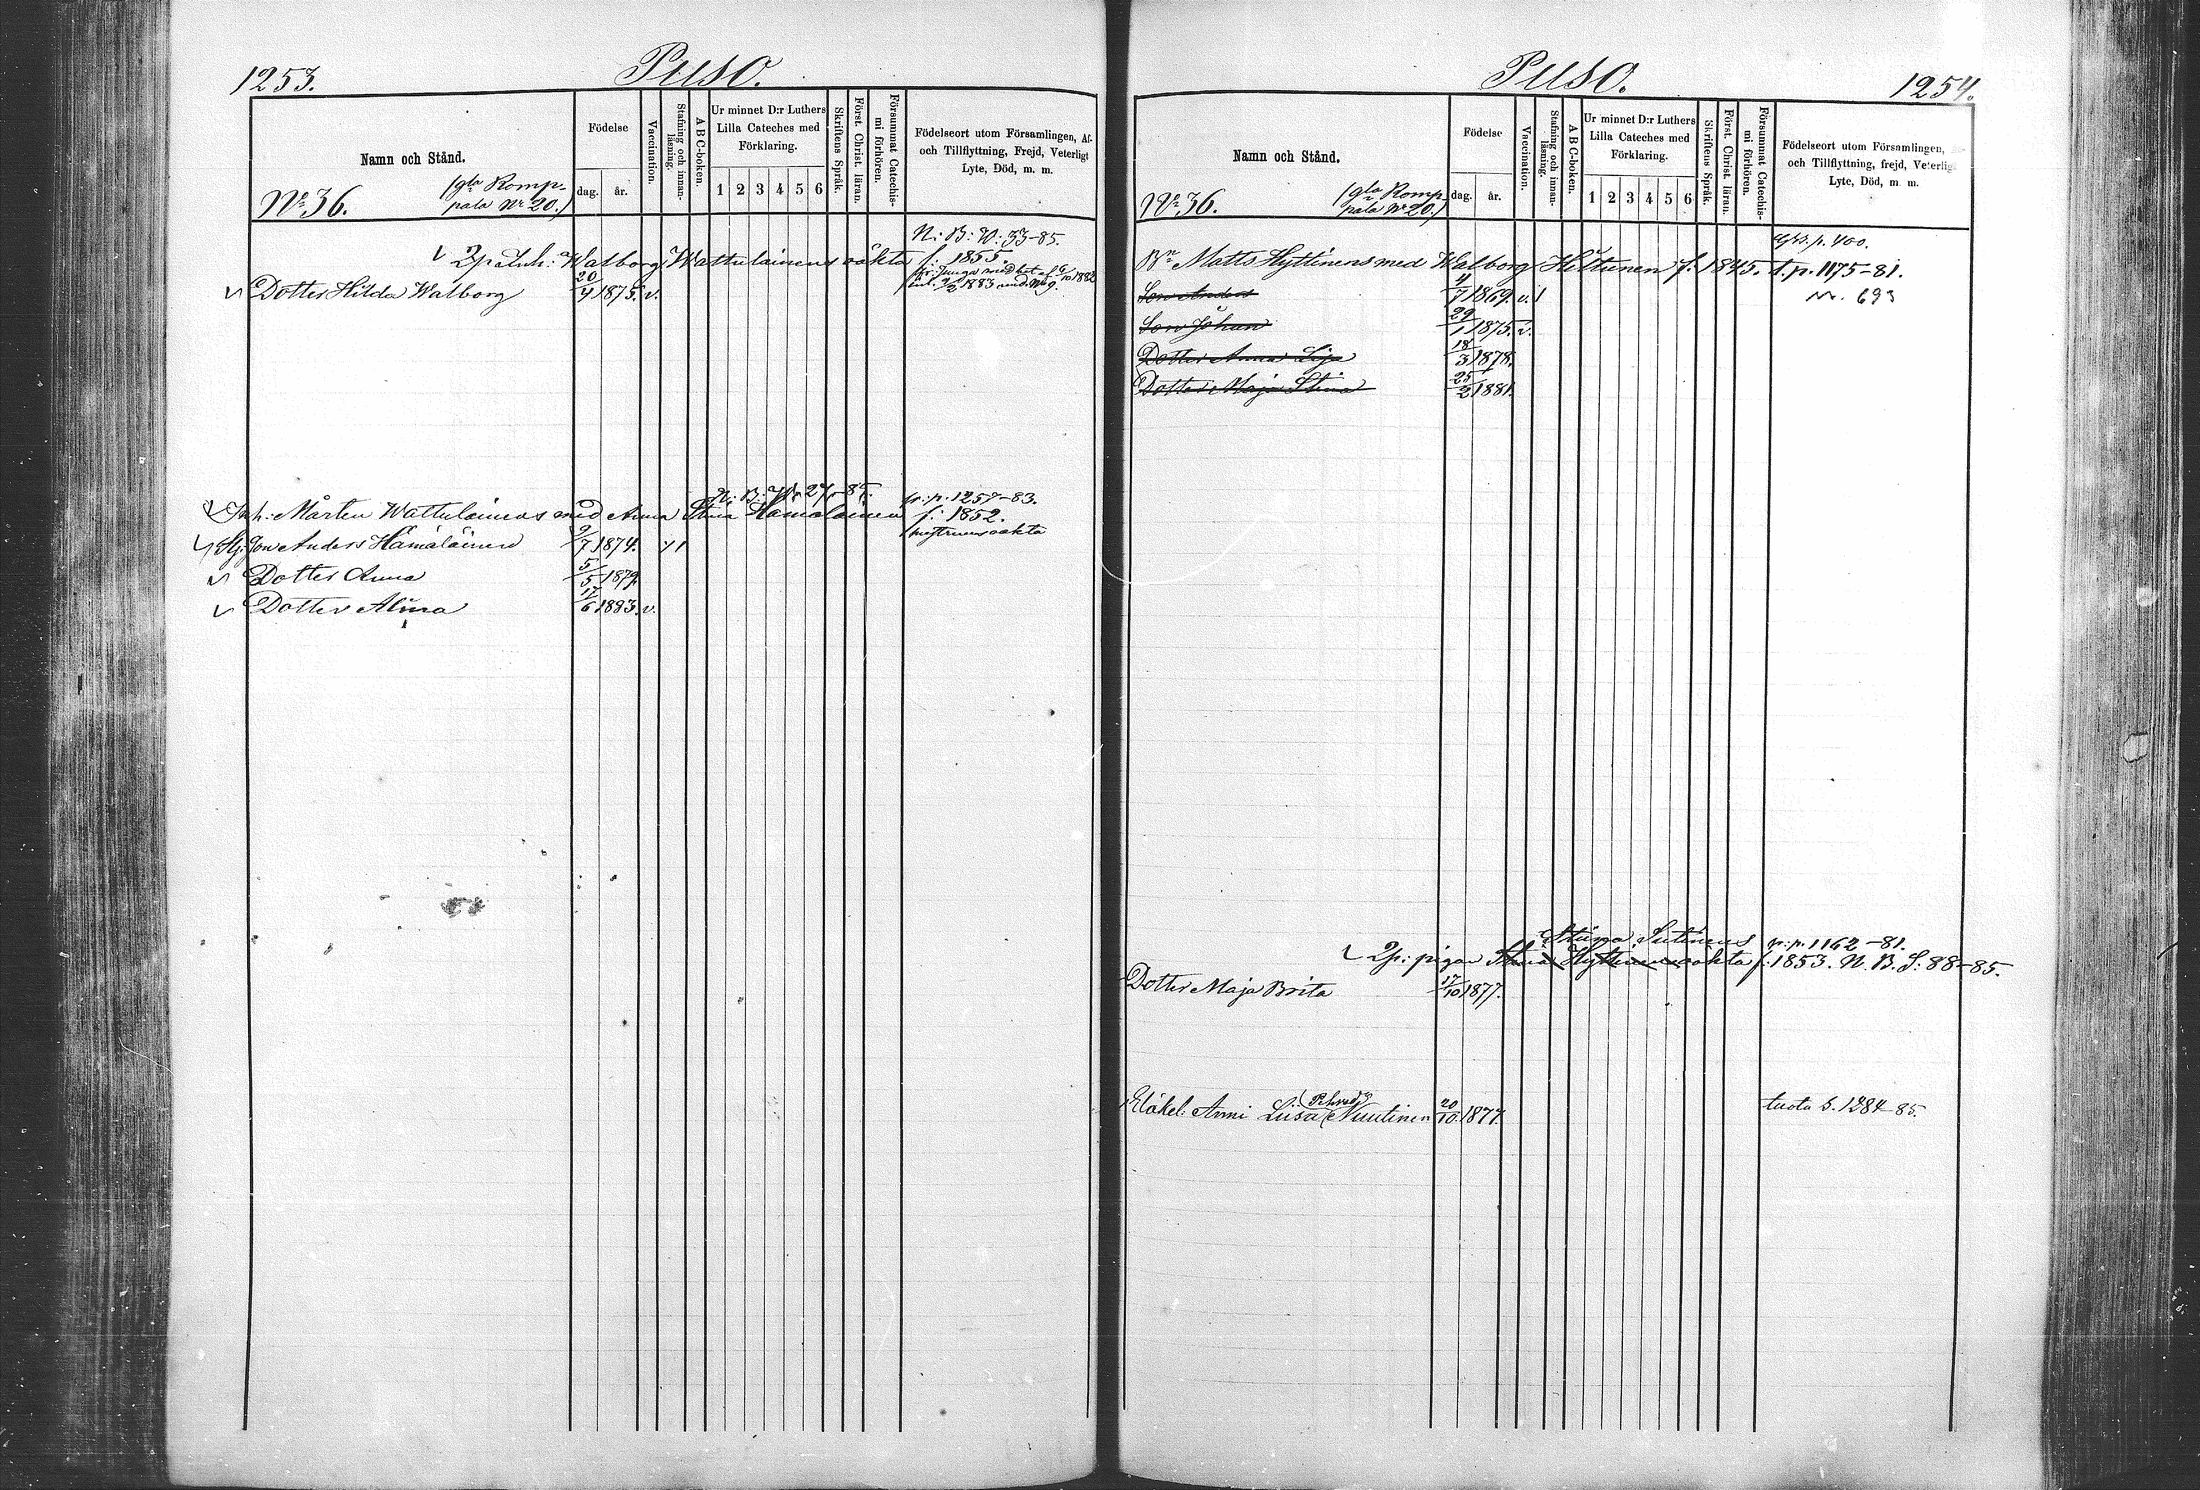 1253.
Puso.
Namn och Stånd.
Födelse
dag. år.
Vaccination.
Stafning och innan-läsning.
A B C-boken.
Ur minnet D:r Luthers
Lilla Cateches med
Förklaring.
1 2 3 4 5 6
Skriftens Språk.
Först. Christ. läran.
Försummat Catechis-mi förhören.
Födelseort utom Församlingen, Af-
och Tillflyttning, Frejd, Veterligt
Lyte, Död, m. m.
No 36. (gla Romp-
pala No 20.)
N: B: W: 33-85.
Inh: Walborg Wattulainens oäkta f. 1855.
Dotter Hilda Walborg 20/4 1875. v.
N: B: W. 27,-85. fr. p. 1257-83.
Inh: Mårten Wattulainens med Anna Stina Hämäläinen f. 1852.
Stj: Son Anders Hämäläinen 9/7 1874. oäkta
Dotter Anna 5/5 1879.
Dotter Alina 17/6 1883. v.
Puso.
1254.
Namn och Stånd.
Födelse
dag. år.
Vaccination.
Stafning och innan-läsning.
A B C-boken.
Ur minnet D:r Luthers
Lilla Cateches med
Förklaring.
1 2 3 4 5 6
Skriftens Språk.
Först. Christ. läran.
Försummat Catechis-mi förhören.
Födelseort utom Församlingen,
och Tillflyttning, frejd, Veterlig
Lyte, Död, m. m.
No 36. (gla Romp-
pala No 20.)
p. 400.
Bn Matts Hyttinens med Walborg Hiltunen f. 1845. t. p. 1175-81.
Son Anders 4/7 1869. v. 693
Son Johan 29/1 1875. v.
Dotter Anna Lisa 18/3 1878.
Dotter Maja Stina 25/2 1881.
Stina Sutinens fr. p. 1162-81.
pigan Stina Hyttinens oäkta f. 1853. N. B. S: 88-85.
Dotter Maja Brita 17/10 1877.
Eläkel: Anni Liisa Nuutinen 20/10 1877. tuota S. 1284-85.